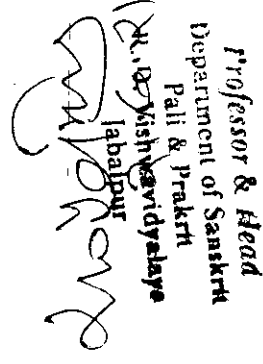 Professor & Head
Department of Sanskrit
Pali & Prakrit
R. D. Vishwavidyalaya
Jabalpur